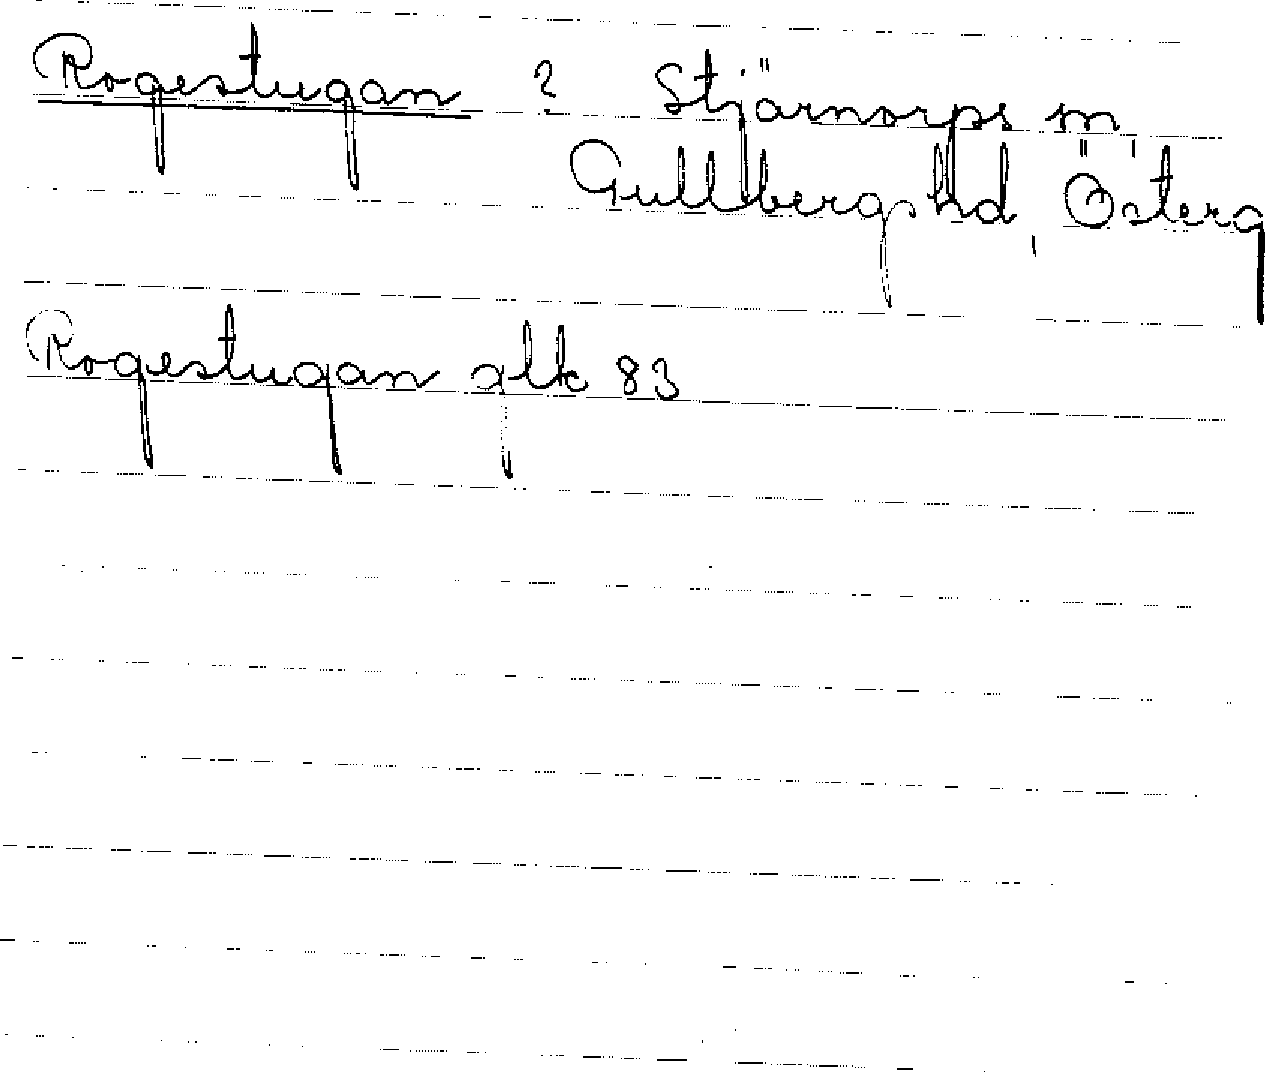 Rogestugan ? Stjärnorps sn,
Gullbergs hd, Österg
Rogestugan glk 83